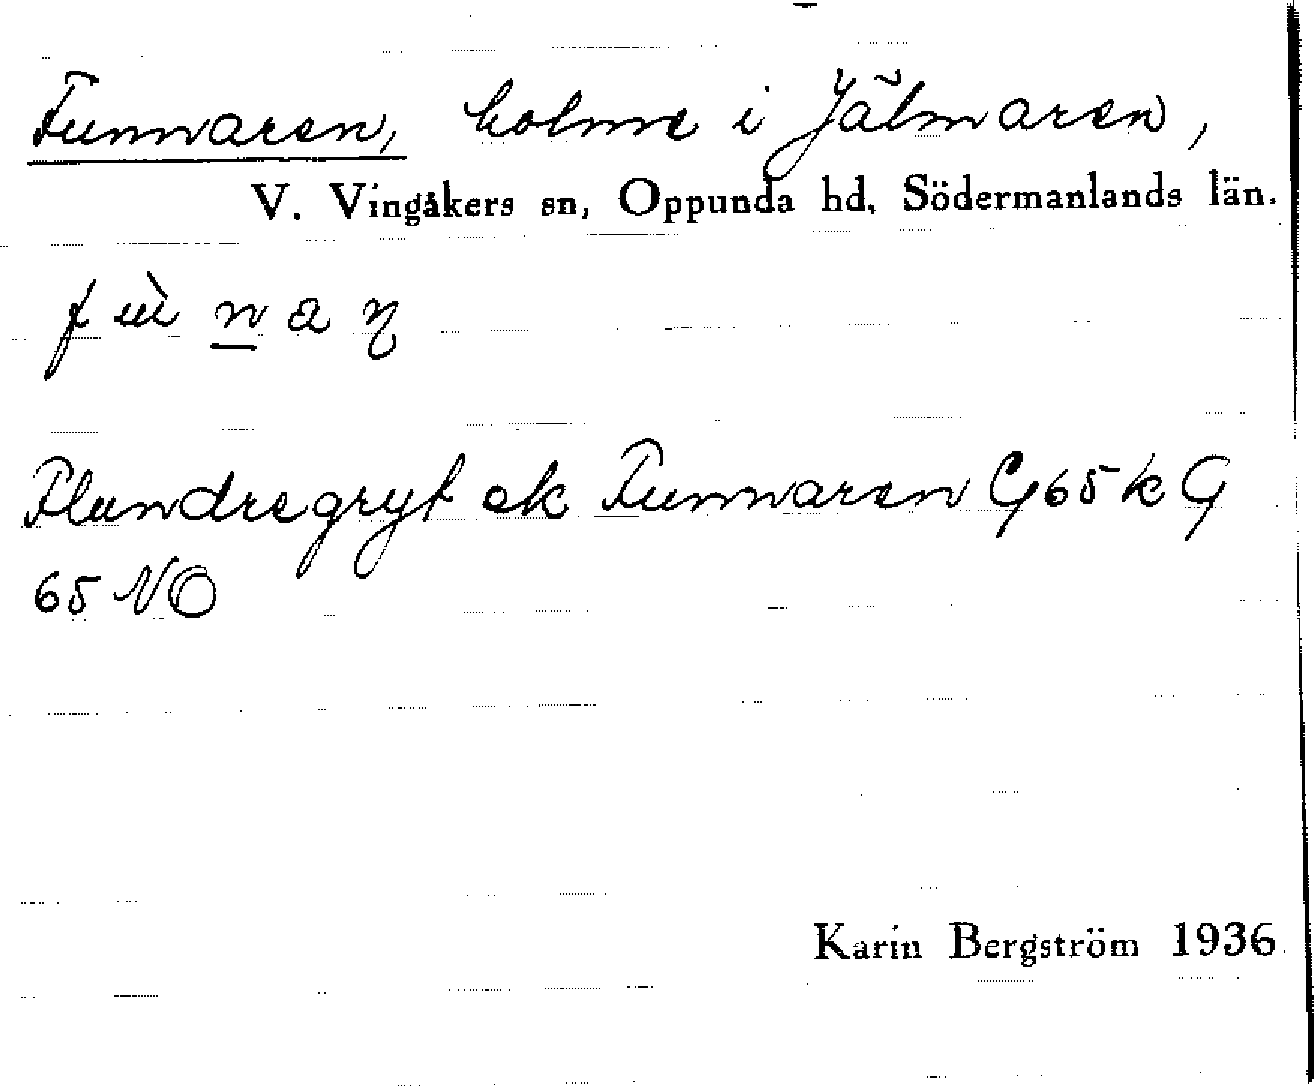 Funnaren, holme i Jälmaren,
V. Vingåkers sn, Oppunda hd, Södermanlands län.
fùnaɳ
Flundregryt ek Funnaren G65k G
65 NO
Karin Bergström 1936